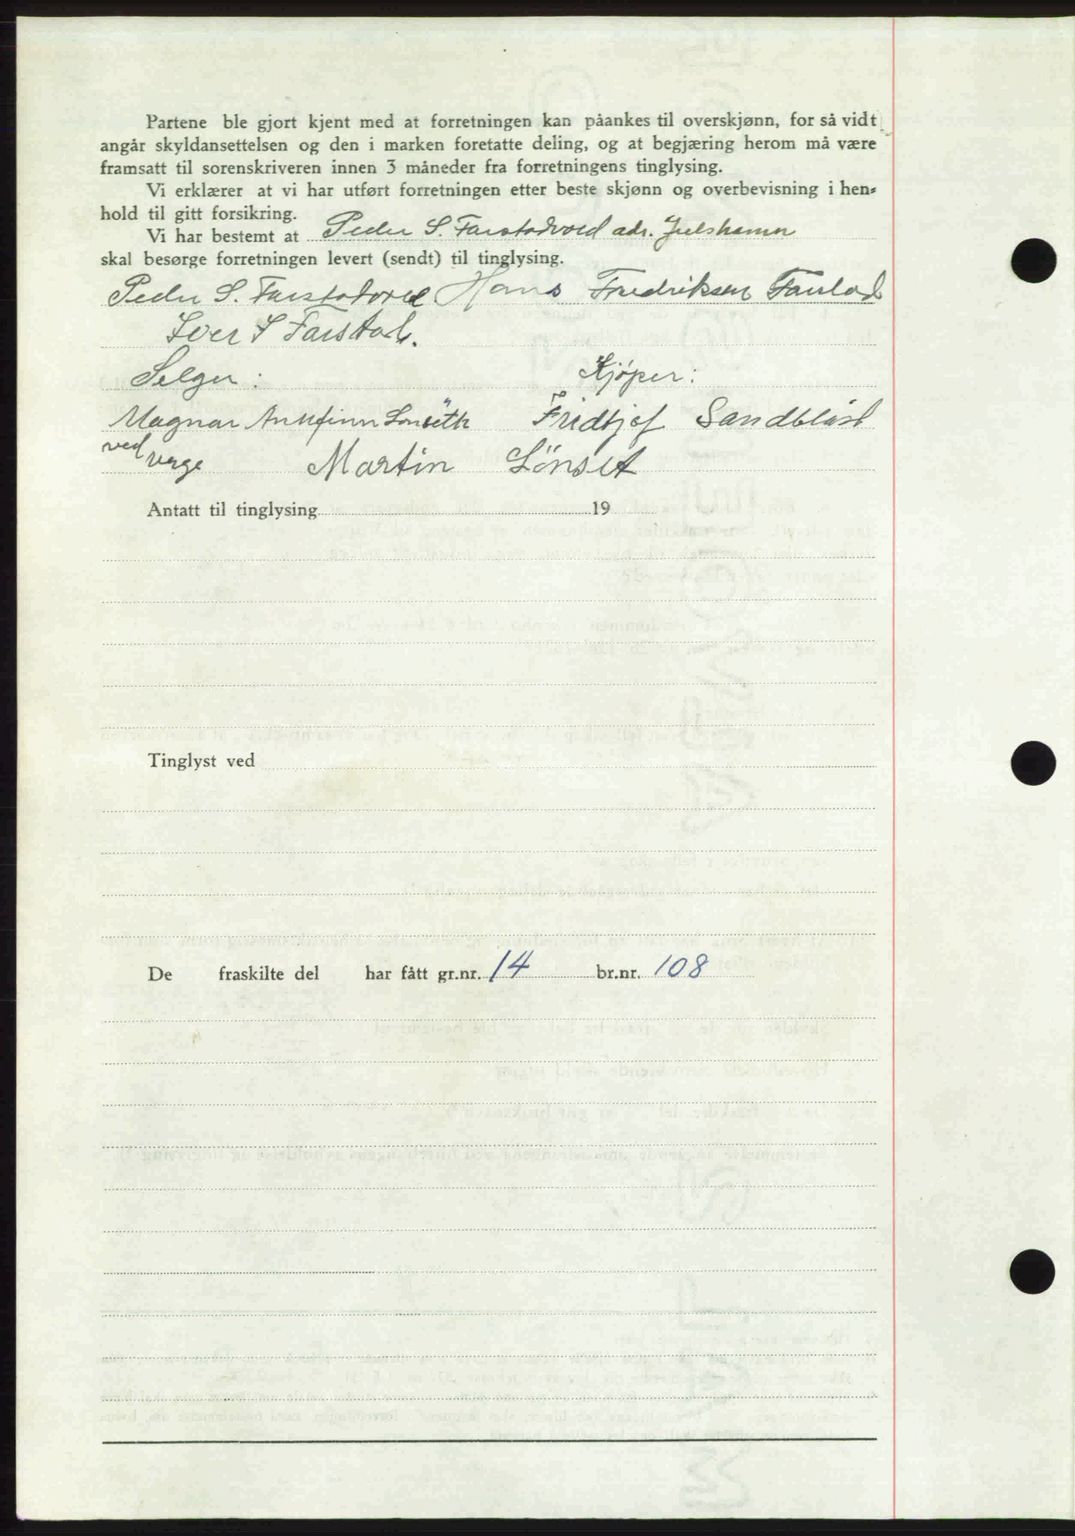 Partene ble gjort kjent med at forretningen kan påankes til overskjønn, for så vidt
angår skyldansettelsen og den i marken foretatte deling, og at begjæring herom må være
framsatt til sorenskriveren innen 3 måneder fra forretningens tinglysing.
Vi erklærer at vi har utført forretningen etter beste skjønn og overbevisning i hen-
hold til gitt forsikring.
Vi har bestemt at Peder S. Farstadvoll adr. Julshamn
skal besørge forretningen levert (sendt) til tinglysing.
Peder S. Farstadvoll Hans Fredriksen Farstad
Iver S Farstad.
Selger: Kjøper:
Magnar Arnfinn Lønseth Fridtjof Sandblåst
ved verge Martin Lønset
Antatt til tinglysing 19
Tinglyst ved
De fraskilte del har fått gr.nr. 14 br.nr. 108